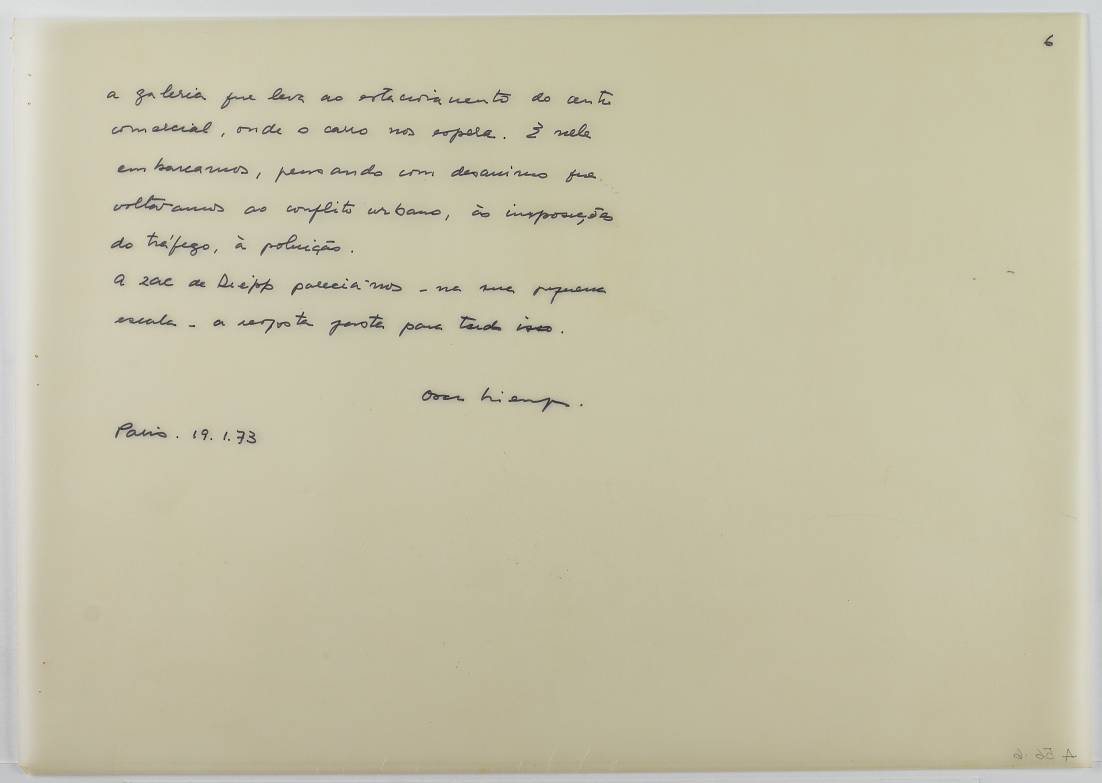 6
a galeria que leva ao estacionamento do centro
comercial, onde o carro nos espera. E nele
embarcamos, pensando com desanimo que
voltávamos ao conflito urbano, às imposições
do tráfego, à poluição.
A ZAC de Diepp parecia-nos - na sua pequena
escala - a resposta justa para tudo isso.
Oscar Niemeyer.
Paris. 19.1.73
A 56.6